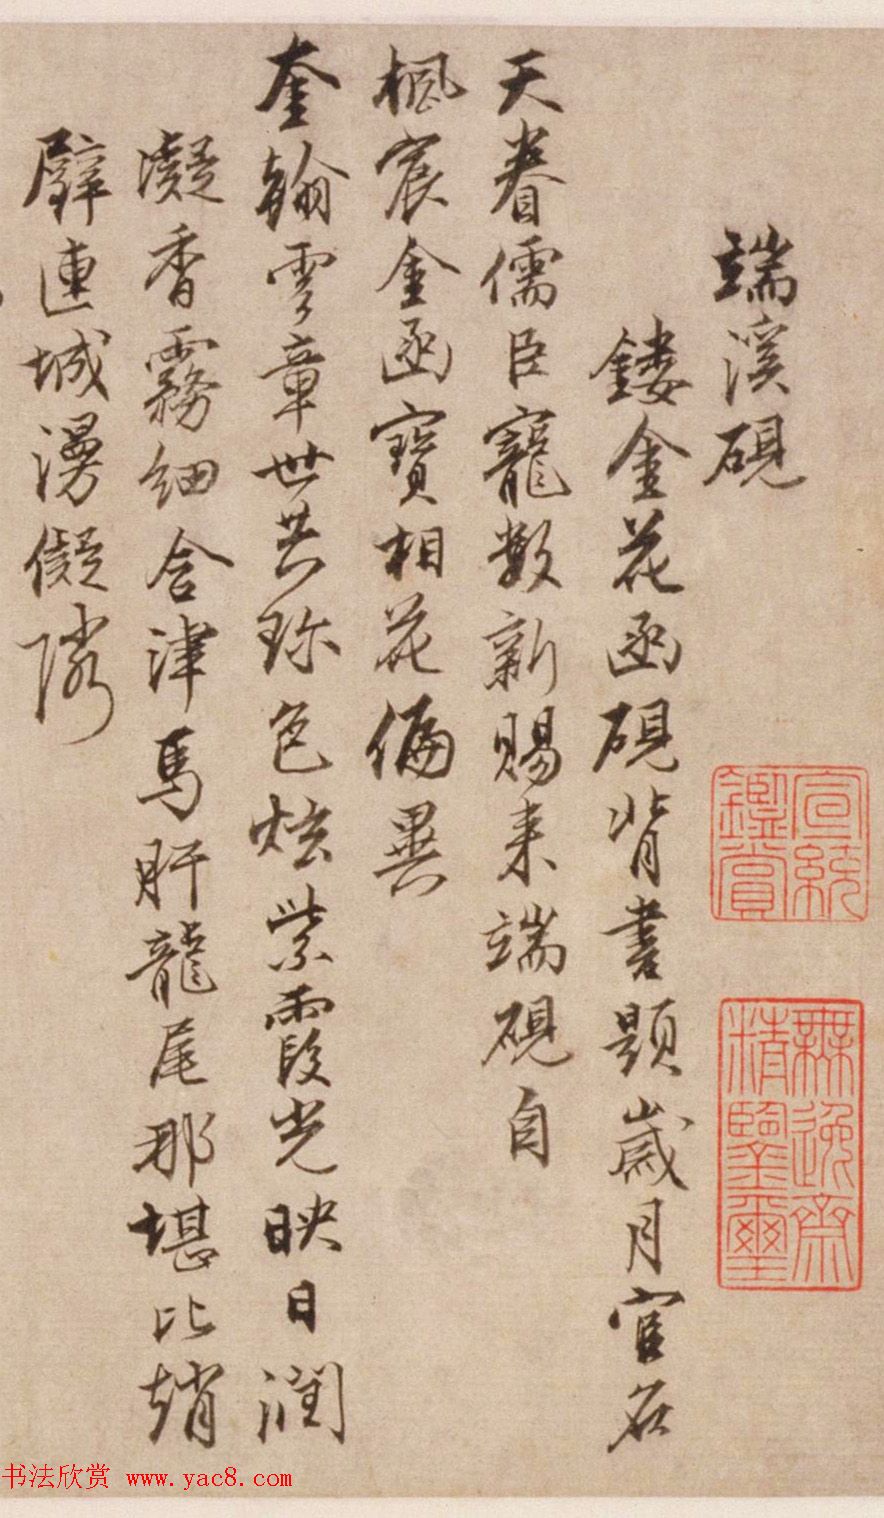 端溪硯
鏤金花函硯背書題歲月官名
天眷儒臣寵數新賜来端硯自
楓宸金函寶相花偏異
奎翰雲章世共珎色炫紫霞光映日潤
凝香霧細含津馬肝龍尾那堪比趙
璧連城漫儗隣
宣統鑑賞
無逸齋精鑒璽
书法欣赏 www.yac8.com